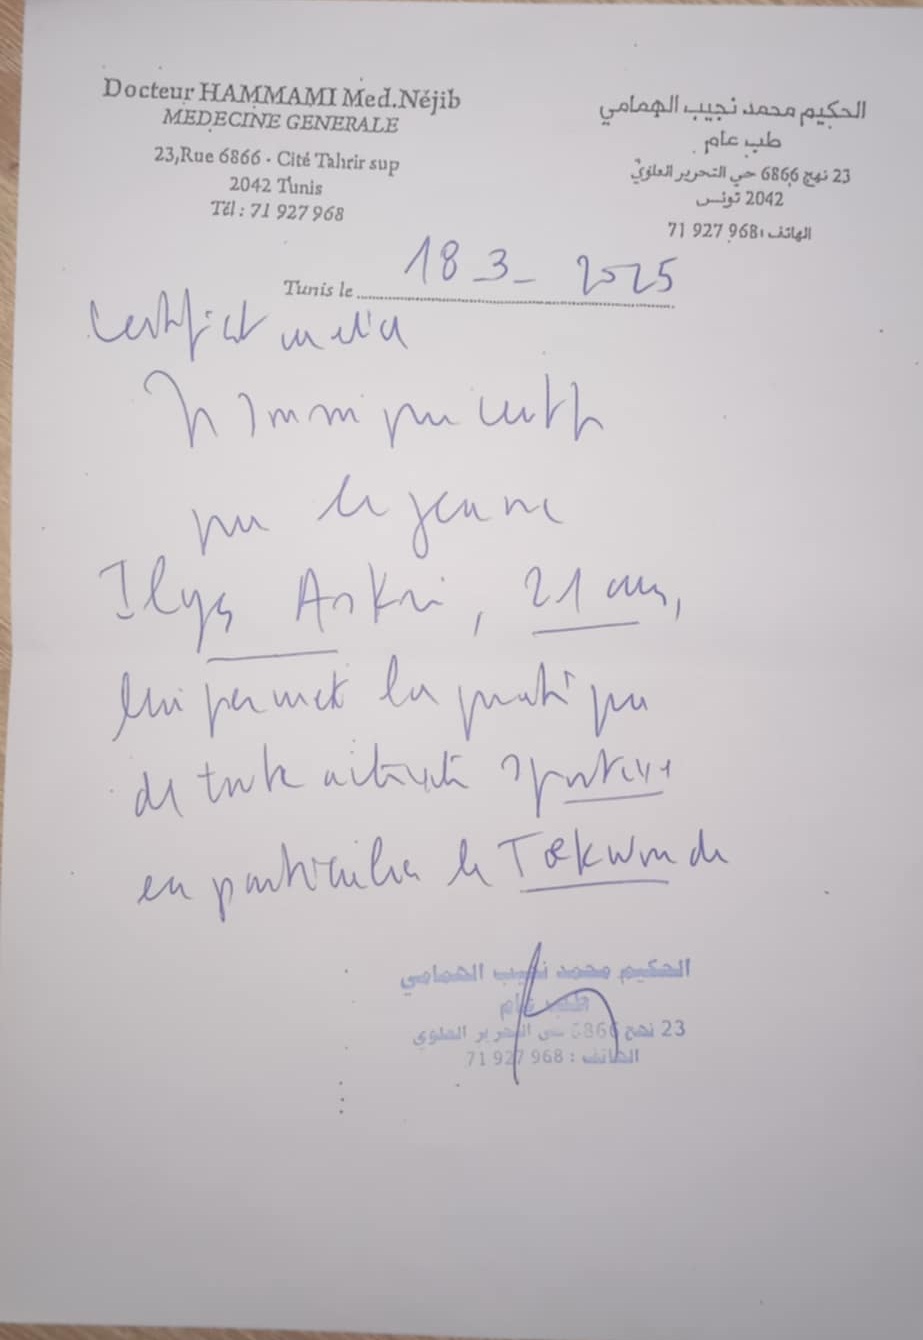 Docteur HAMMAMI Med.Néjib
MEDECINE GENERALE
23,Rue 6866 - Cité Tahrir sup
2042 Tunis
Tél : 71 927 968
الحكيم محمد نجيب الهمامي
طب عام
23 نهج 6866 حي التحرير العلوي
2042 تونس
الهاتف : 71 927 968
Tunis le 18 3 - 2025
Certificat medical
que le jeune
Ilyes Askri, 21 ans,
lui permet la pratique
de toute activité sportive
en particulier le Taekwondo
الحكيم محمد نجيب الهمامي
طب عام
23 نهج 6866 حي التحرير العلوي
الهاتف : 71 927 968